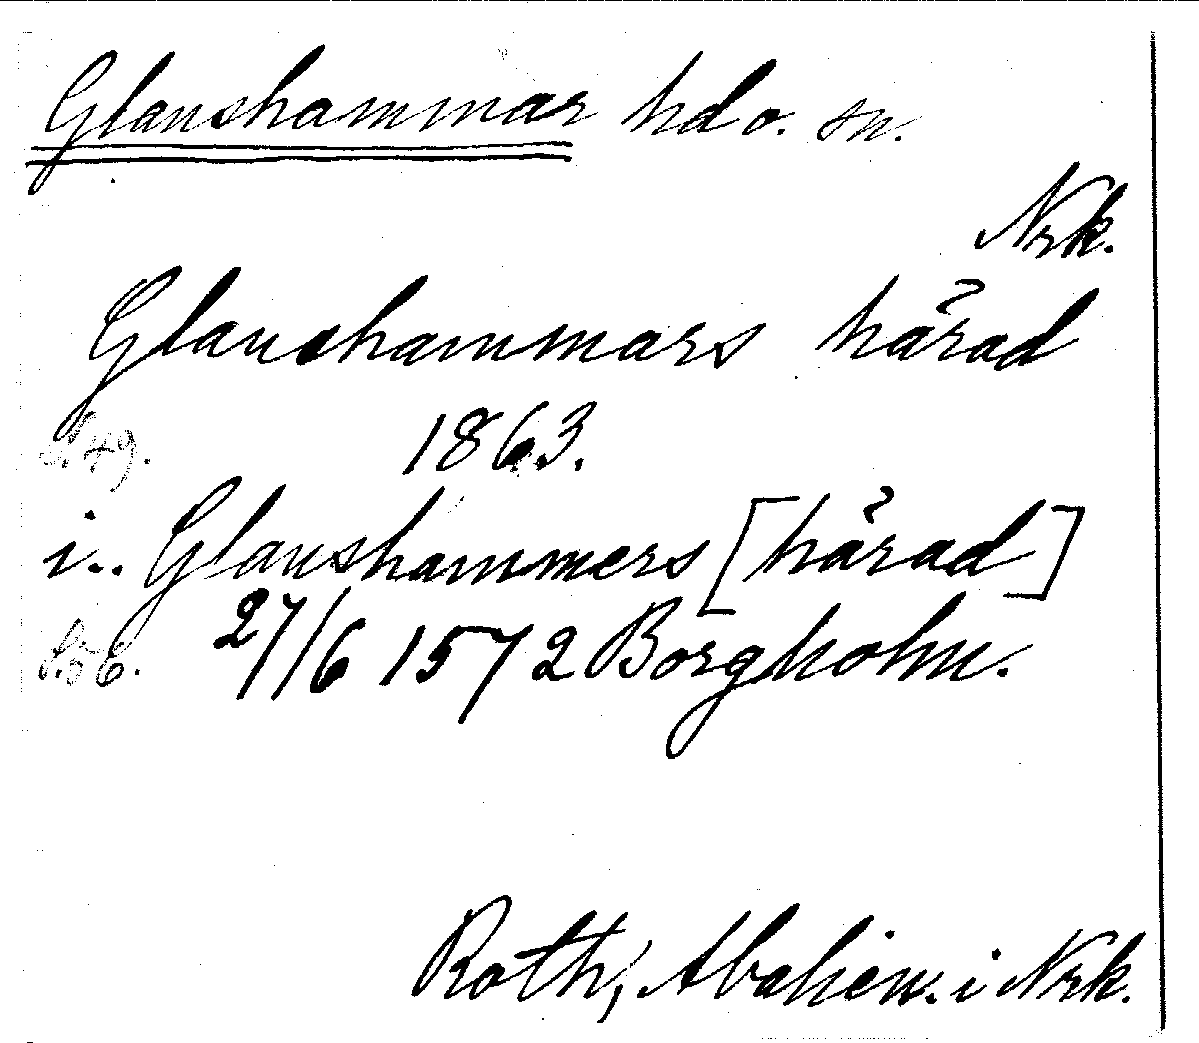 Glanshammar hd o. sn.
Nrk.
Glanshammars härad
S. 49. 1863.
i.. Glanshammers [härad]
S. 56. 27/6 1572 Borgholm.
Roth, i Nrk.